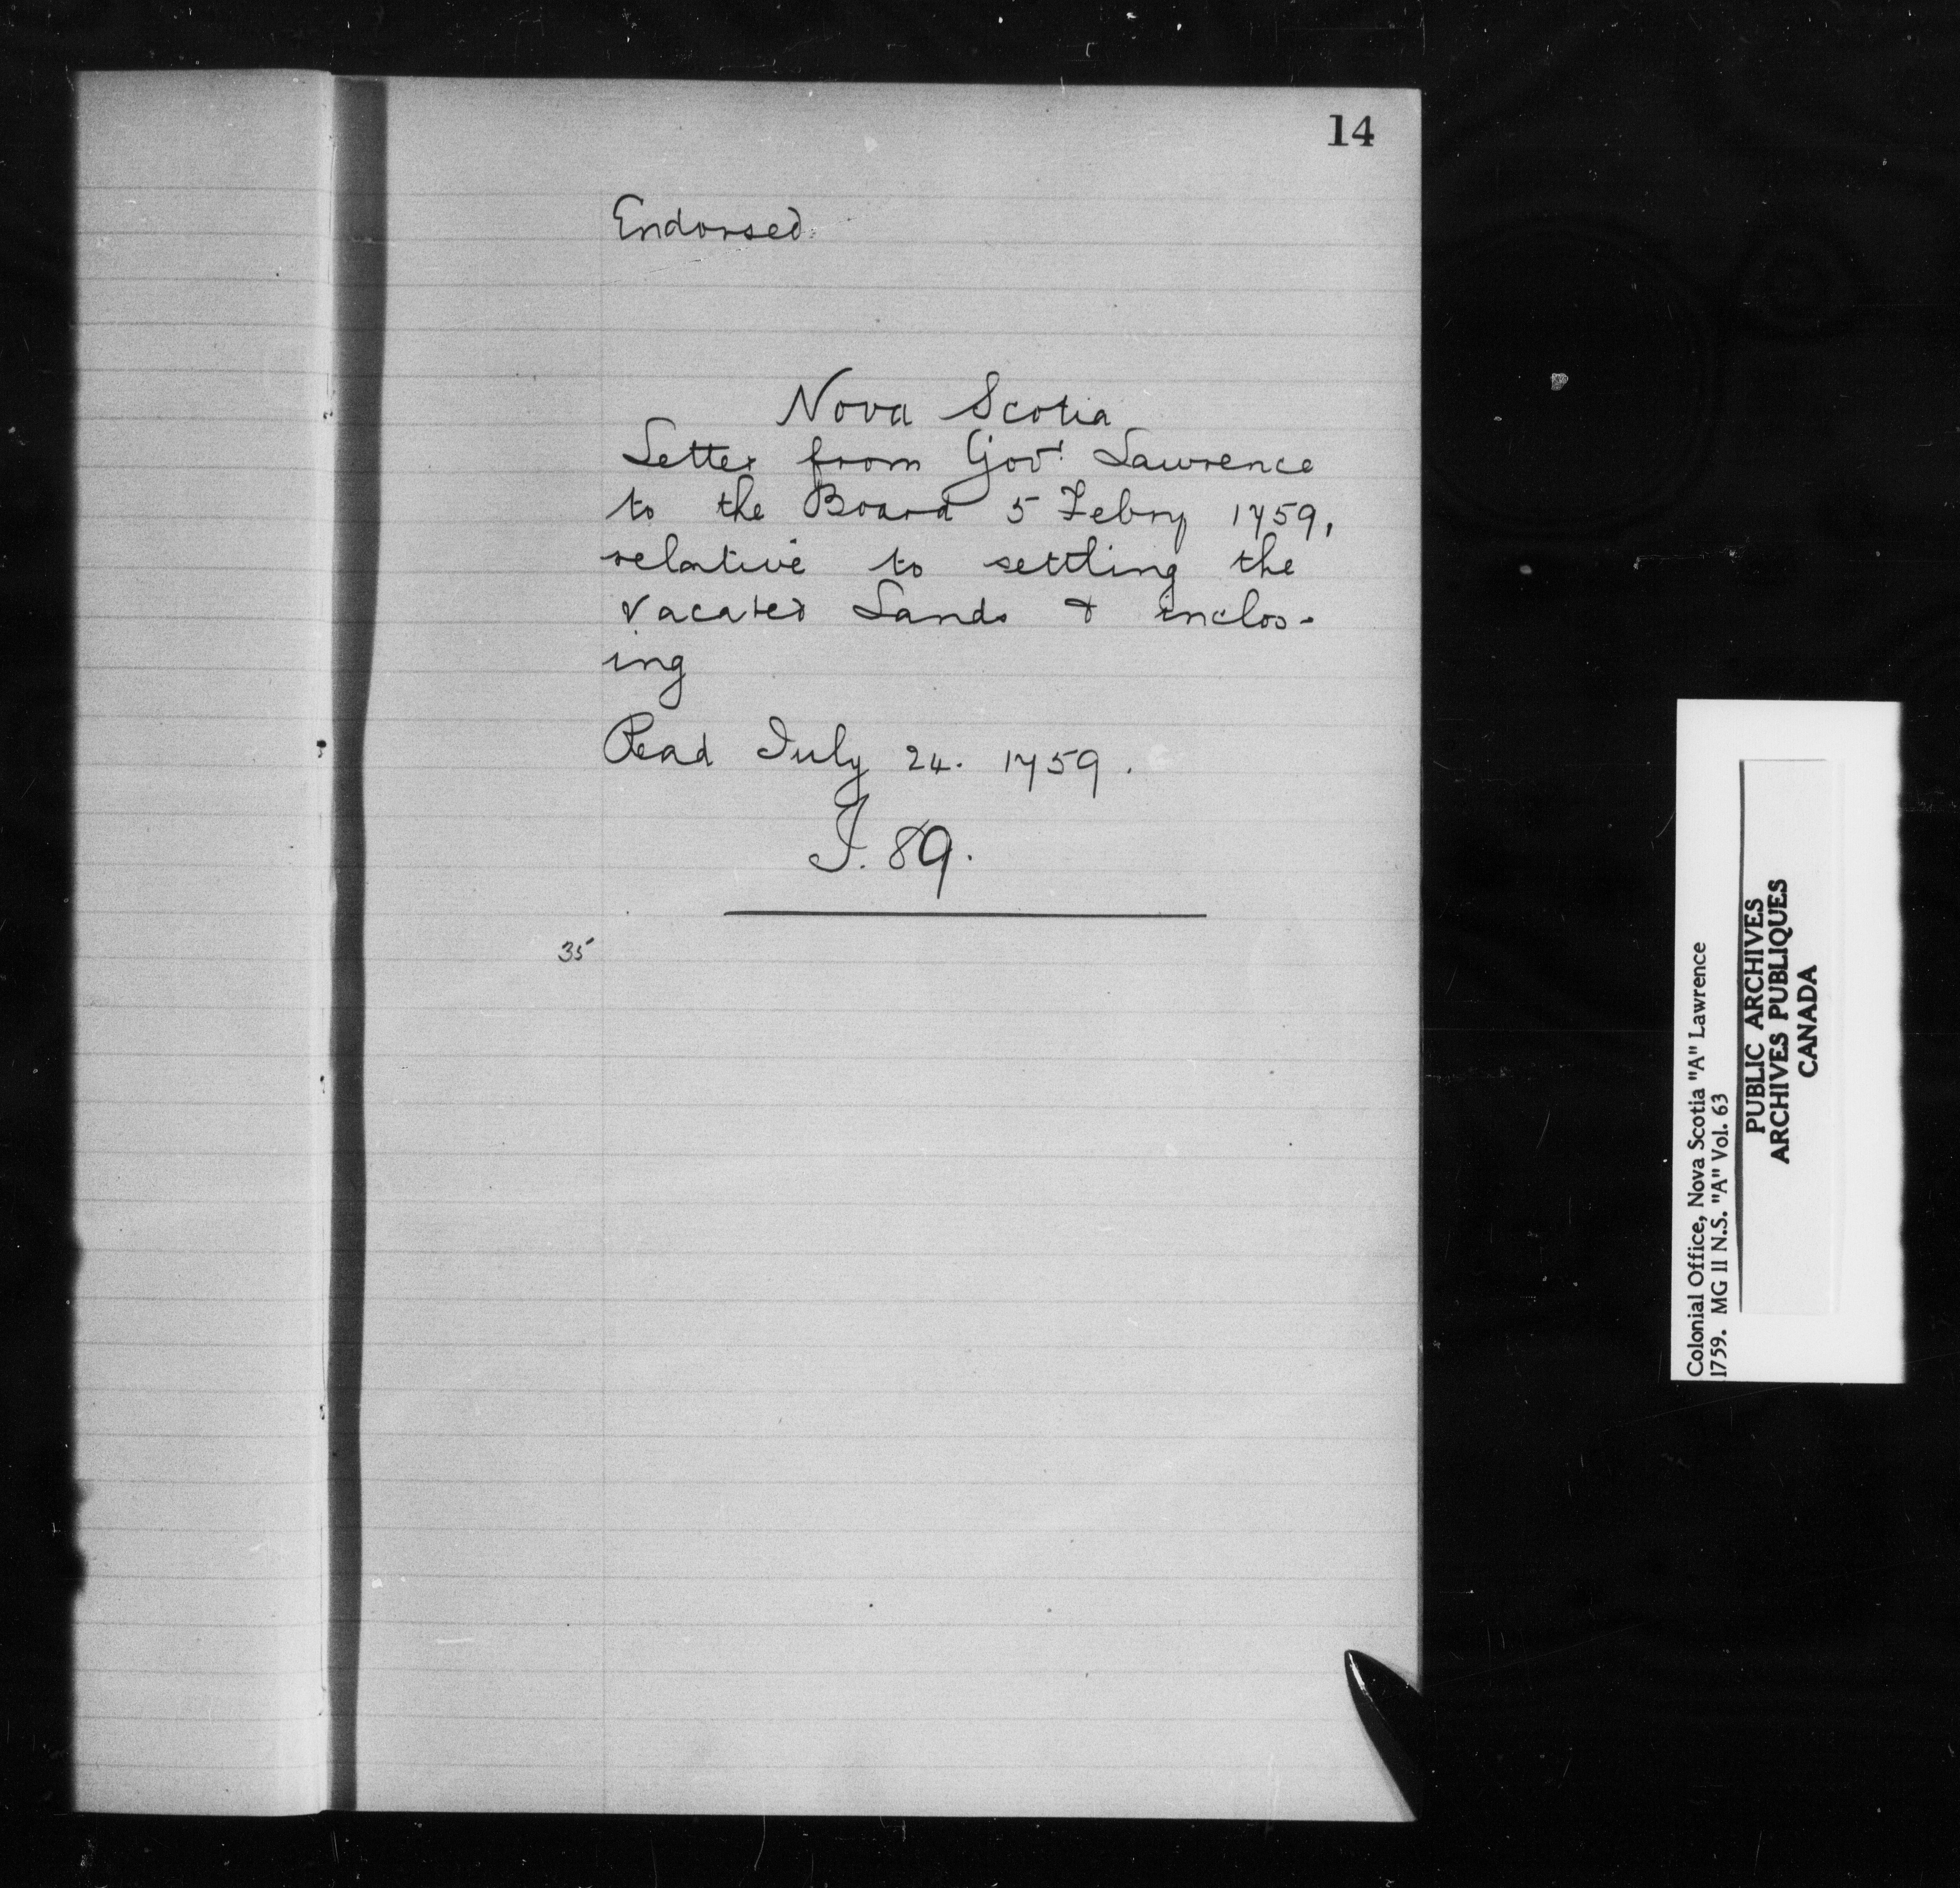 14
Endorsed.
Nova Scotia
Letter from Govr Lawrence
to the Board 5 Febry 1759,
relative to settling the
vacated Lands & inclos-
ing
Read July 24. 1759.
I. 89.
35
Colonial Office, Nova Scotia "A" Lawrence
1759. MG 11 N.S. "A" Vol. 63
PUBLIC ARCHIVES
ARCHIVES PUBLIQUES
CANADA